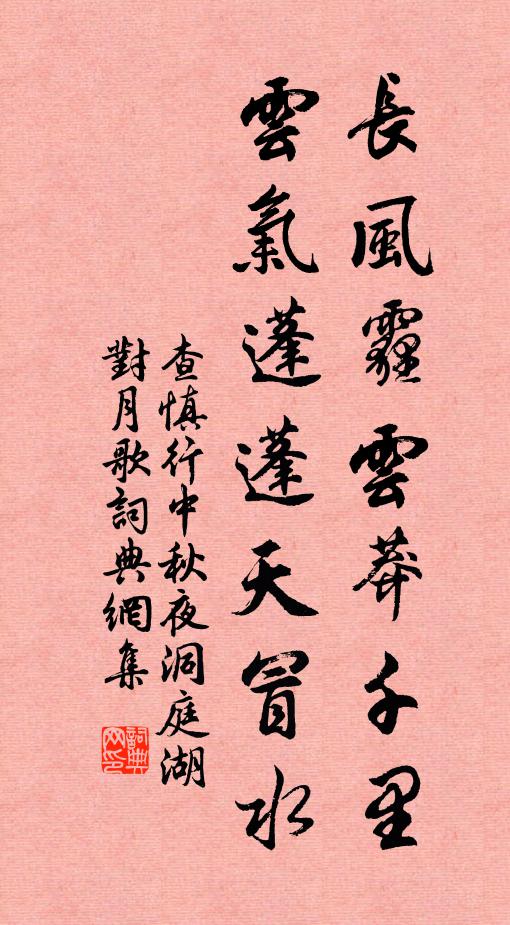 長風霾雲莽千里
雲氣蓬蓬天冒水
查慎行中秋夜洞庭湖
對月歌詞典網集
詞典網印